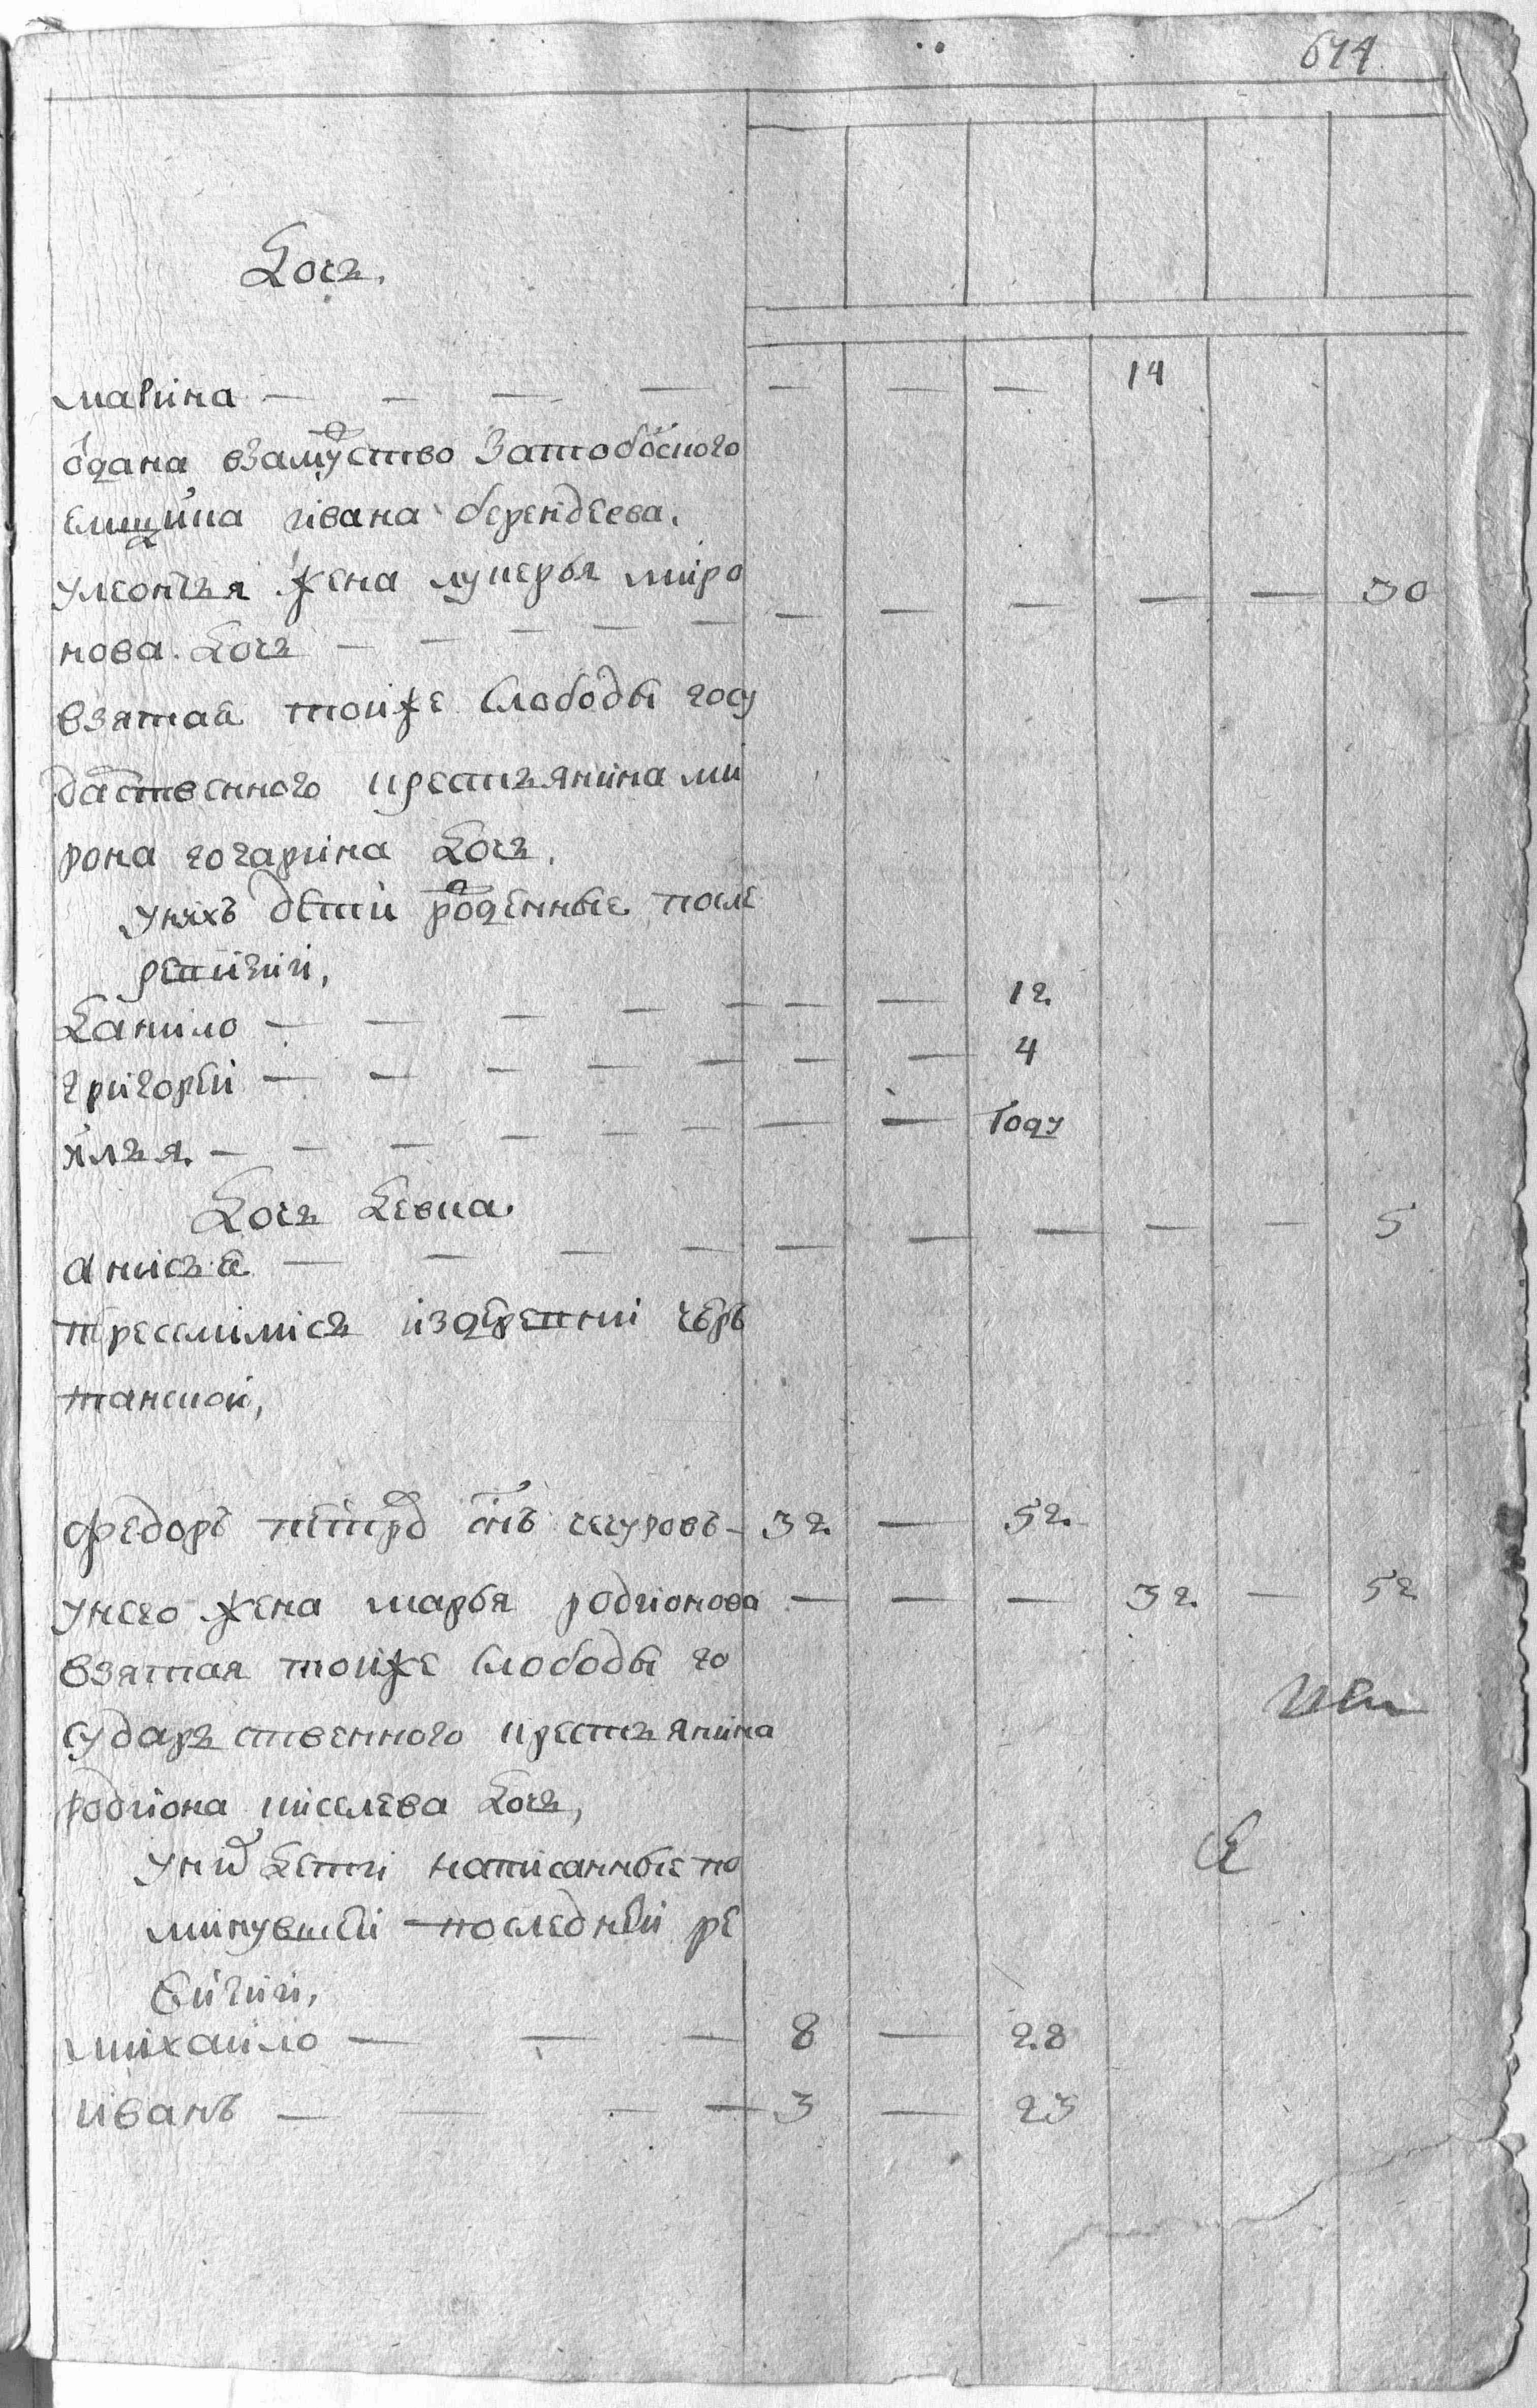 674
Дочь.
марина — — — — — — — 14
одана взамуство Затобоского
емщика ивана берендеева.
Улеонтья жена лукерья миро
нова. Дочь — — — — — — — — — — 30
взятая тойже Слободы госу
даственного крестьянина ми
рона гогарина Дочь.
Уних дети роденные после
ревизии,
Данило — — — — — — — 12
григорей — — — — — — — 4
илья — — — — — — — — году
Дочь Девка.
анисья — — — — — — — — — — 5
федоръ петров снъ чечуровъ — 32 — 52
Унего жена марья родионова — — — 32 — 52
взятая тойже Слободы го
сударьственного крестьянина
родиона киселева Дочь,
Уних Дети написанные по
минувшей последней ре
визии,
михайло — — — 8 — 28
иванъ — — — — 3 — 23